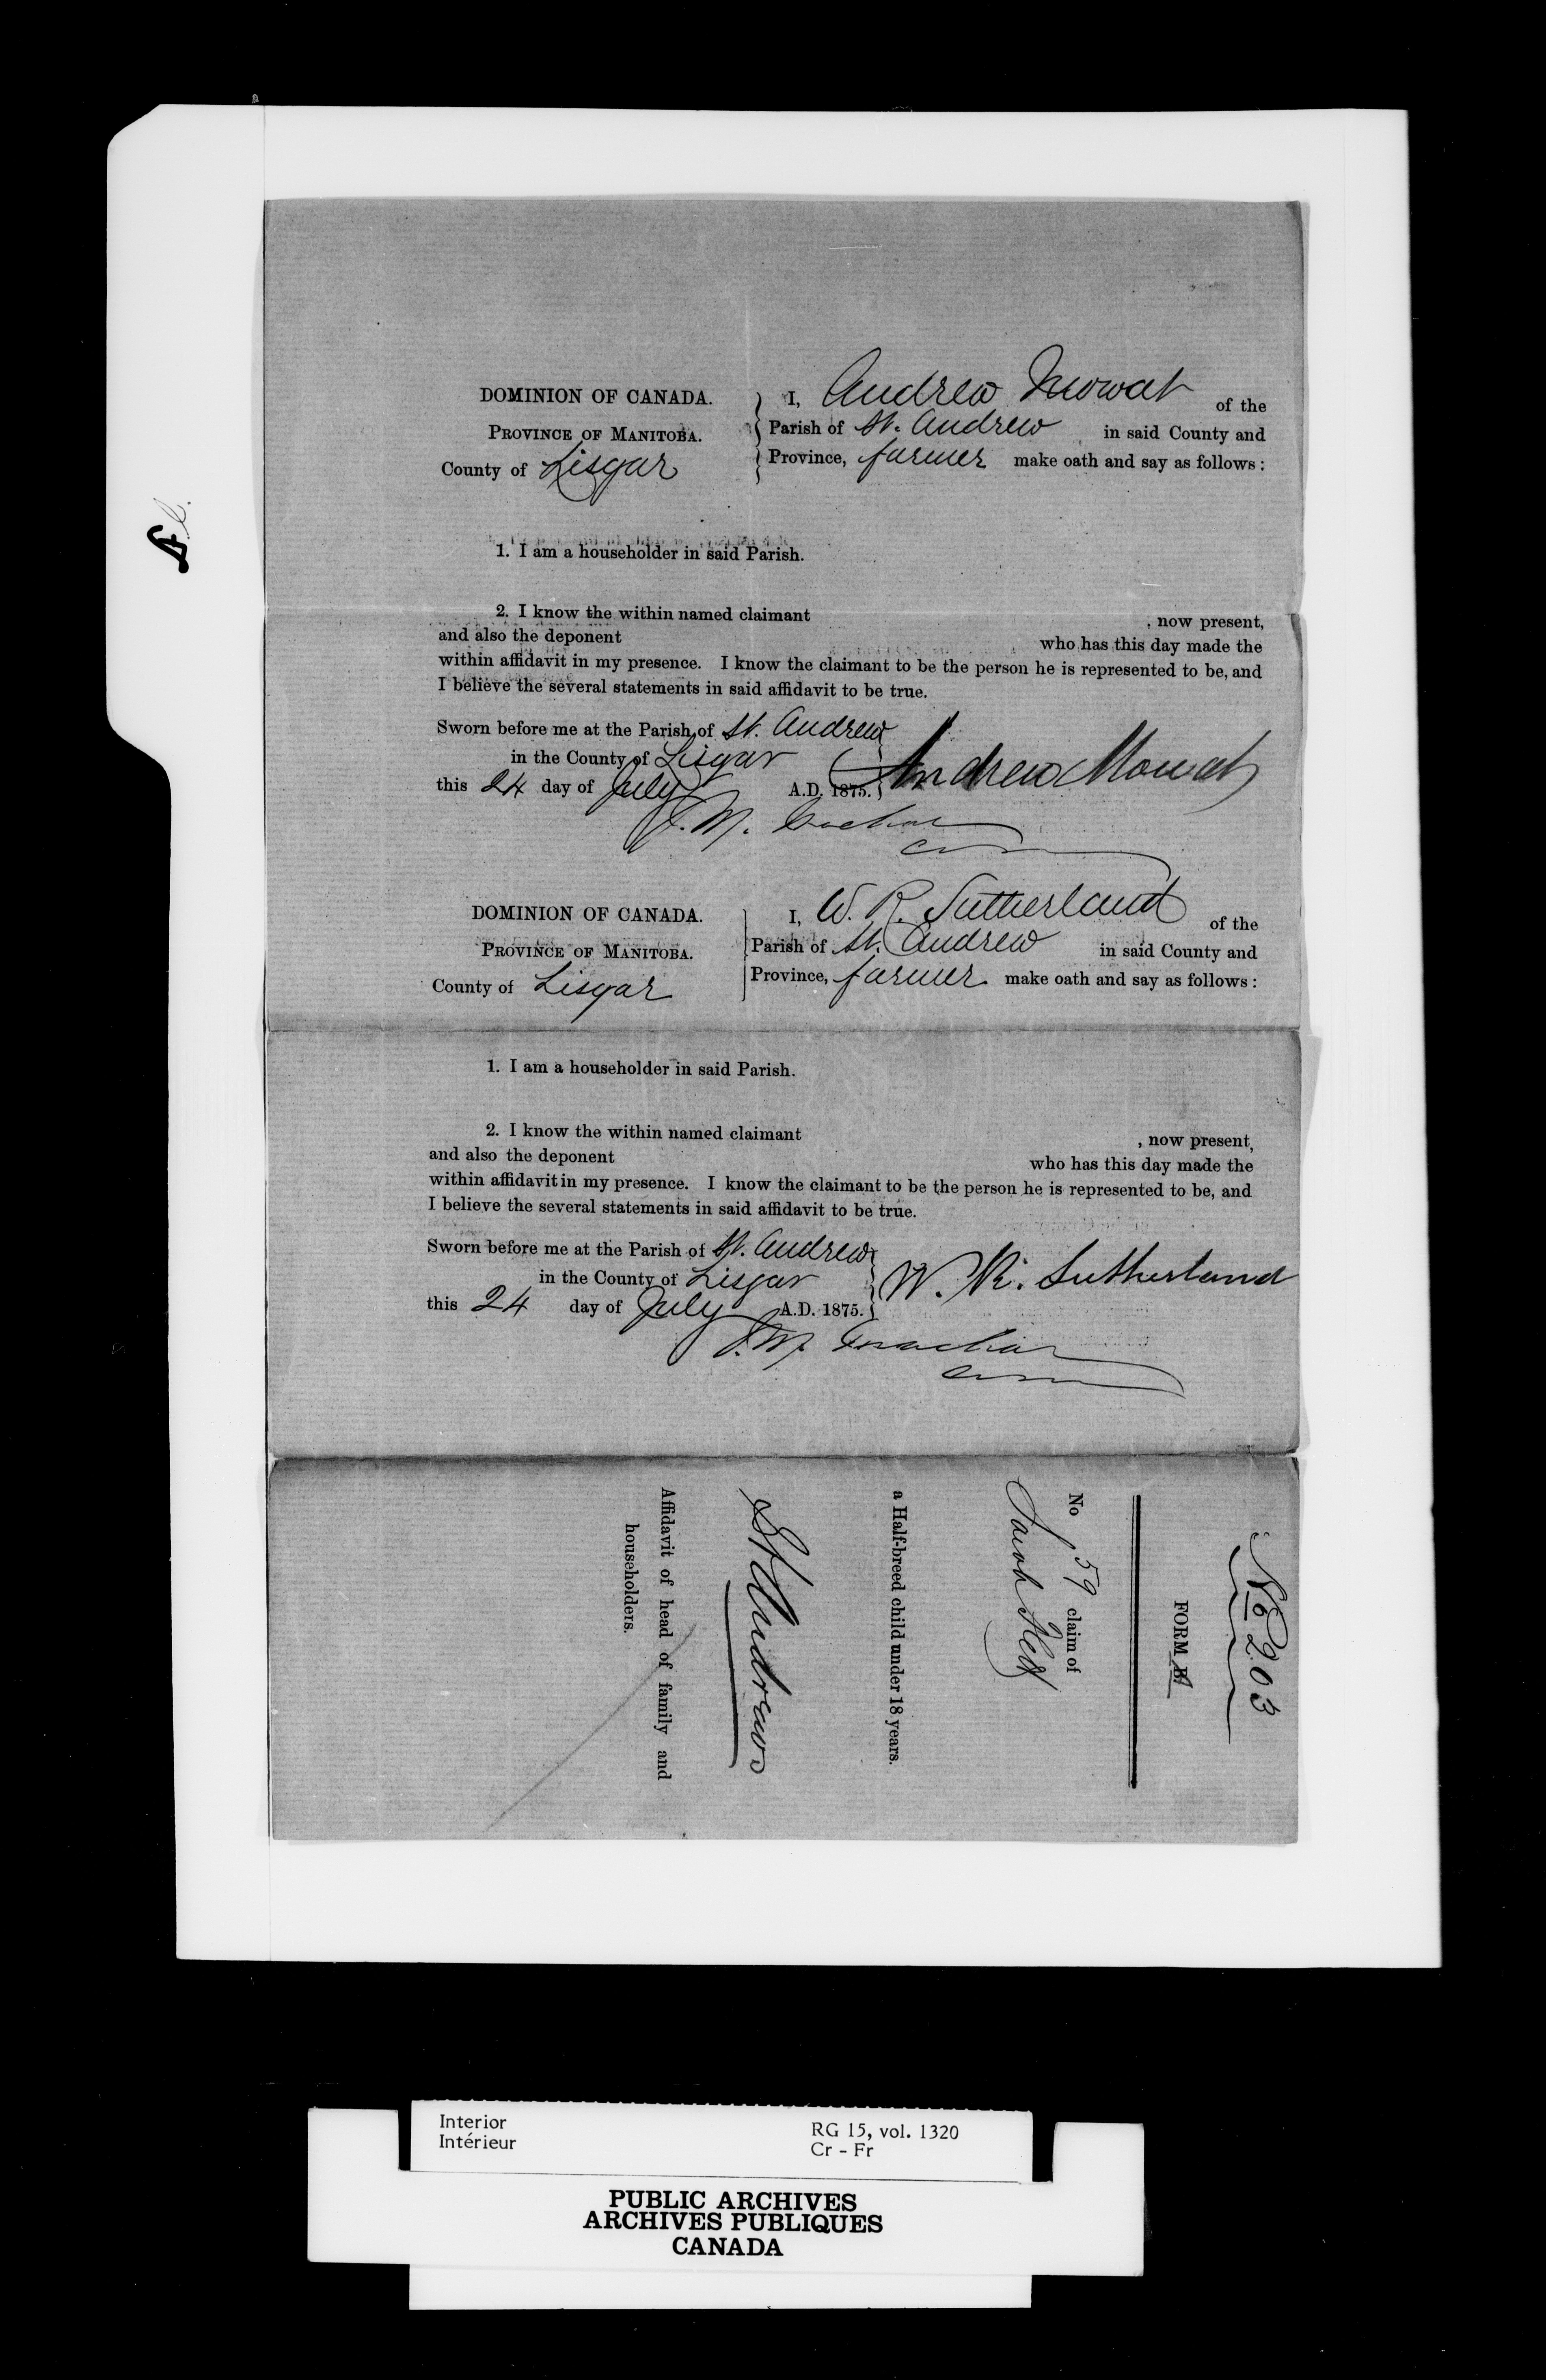 DOMINION OF CANADA.
PROVINCE OF MANITOBA.
County of Lisgar
I, Andrew Mowat of the
Parish of St. Andrew in said County and
Province, farmer make oath and say as follows:
1. I am a householder in said Parish.
2. I know the within named claimant , now present,
and also the deponent who has this day made the
within affidavit in my presence. I know the claimant to be the person he is represented to be, and
I believe the several statements in said affidavit to be true.
Sworn before me at the Parish of St. Andrew
in the County of Lisgar
this 24 day of July A.D. 1875.
Andrew Mowat
DOMINION OF CANADA.
PROVINCE OF MANITOBA.
County of Lisgar
I, W. R. Sutherland of the
Parish of St. Andrew in said County and
Province, farmer make oath and say as follows:
1. I am a householder in said Parish.
2. I know the within named claimant , now present,
and also the deponent who has this day made the
within affidavit in my presence. I know the claimant to be the person he is represented to be, and
I believe the several statements in said affidavit to be true.
Sworn before me at the Parish of St. Andrew
in the County of Lisgar
this 24 day of July A.D. 1875.
W. R. Sutherland
No 203
FORM
No 59 claim of
a Half-breed child under 18 years.
St Andrews
Affidavit of head of family and
householders.
Interior
Intérieur
RG 15, vol. 1320
Cr - Fr
PUBLIC ARCHIVES
ARCHIVES PUBLIQUES
CANADA